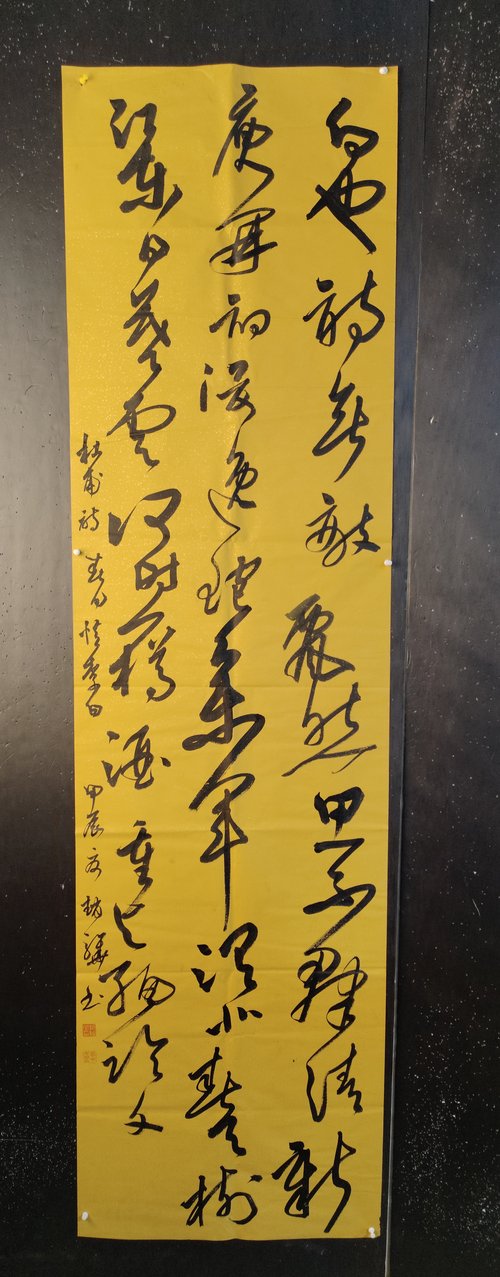 白也詩無敵飄然思不群清新
庾開府俊逸鮑參軍渭北春天樹
江東日暮雲何時一樽酒重與細論文
杜甫詩春日憶李白甲辰夏驊書